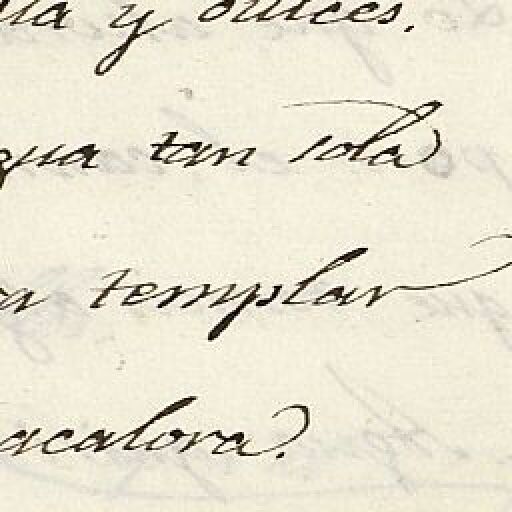 y dulces.
gua tan sola
templar
acalora.